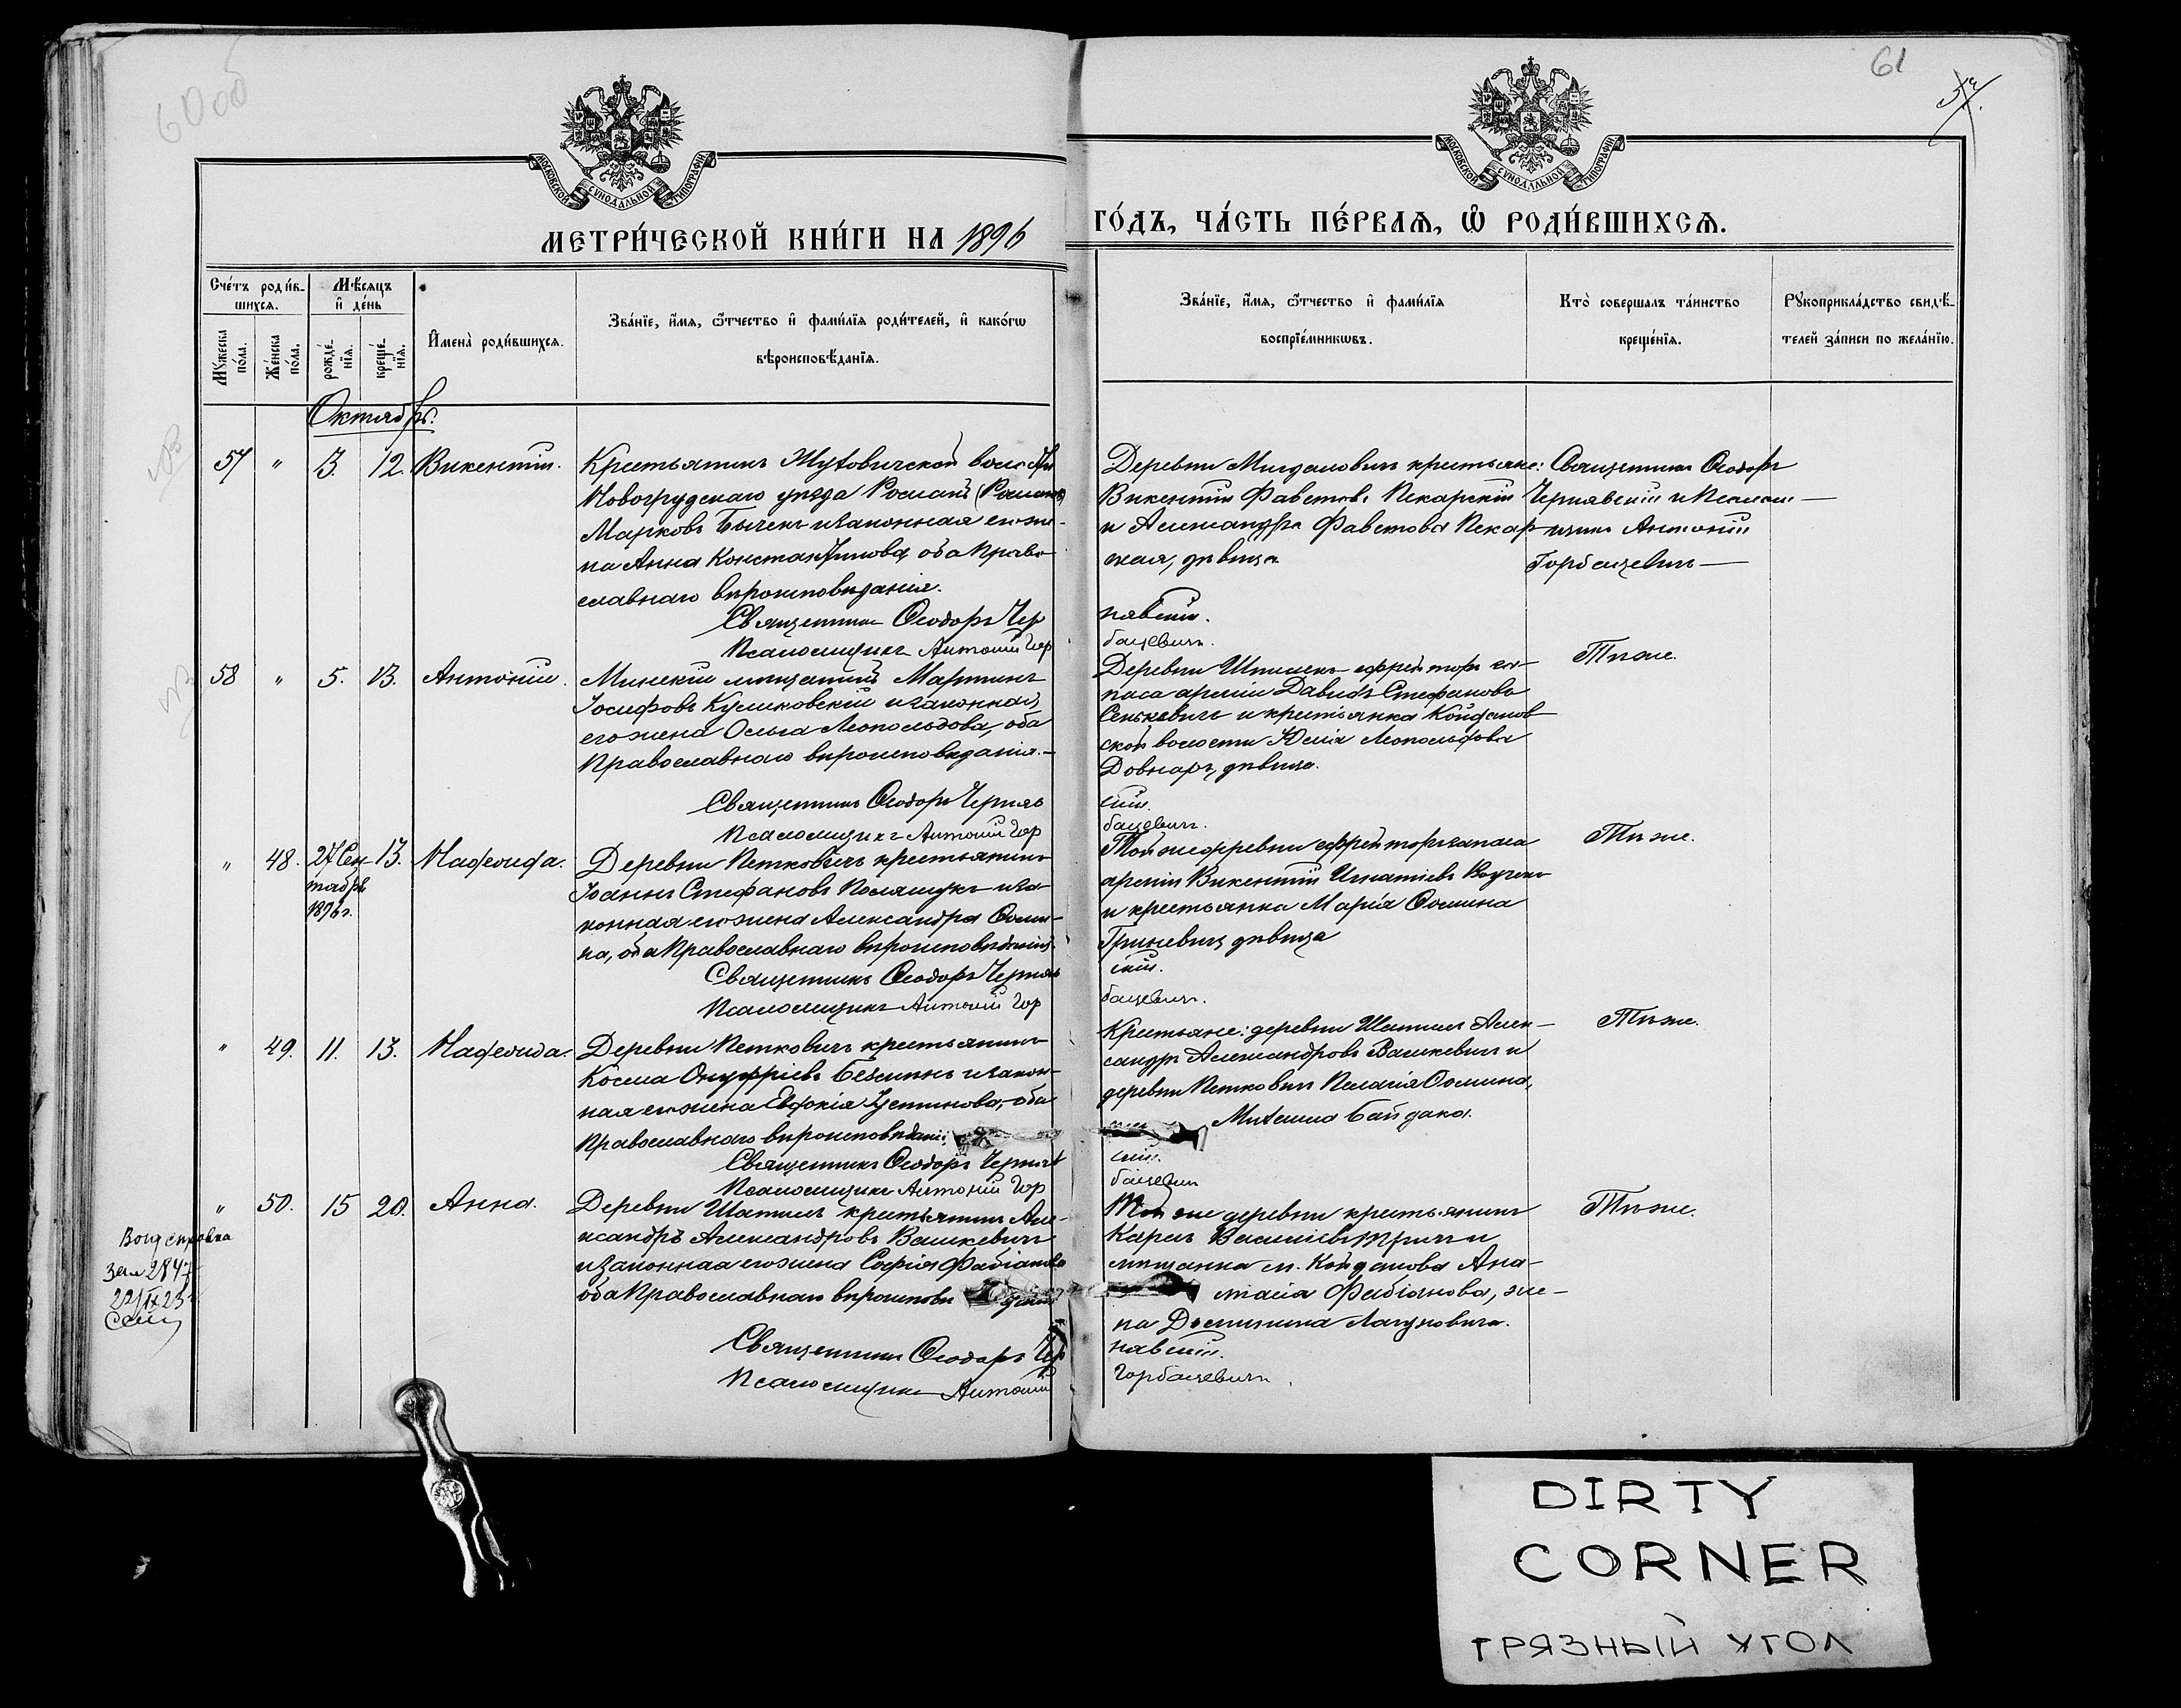 60 об
61
37.
МОСКОВСКОЙ СУНОДАЛЬНОЙ ТИПОГРАФІИ
МОСКОВСКОЙ СУНОДАЛЬНОЙ ТИПОГРАФІИ
МЕТРИ́ЧЕСКОЙ КНИ́ГИ НА 1896
ГО́ДЪ, ЧА́СТЬ ПЕ́РВАЯ, Ѡ РОДИ́ВШИХСЯ.
Сче́тъ роди́в-
шихся.
Мѣ́сяцъ
и҆ де́нь
Мꙋ́жеска по́ла.
Же́нска по́ла.
рожде́-нїя.
креще́-нїя.
И҆мена̀ роди́вшихся.
Зва́нїе, и҆́мя, ѻ҆́тчество и҆ фами́лїя роди́телей, и҆ како́гѡ
вѣроисповѣ́данїя.
Зва́нїе, и҆́мя, ѻ҆́тчество и҆ фами́лїя
воспрїе́мникѡвъ.
Кто̀ соверша́лъ та́инство
креще́нїя.
Рꙋкоприкла́дство свидѣ́-
телей за́писи по жела́нїю.
Октябрь.
57 " 3. 12. Викентій.
Крестьянинъ Жуховичской волости
Новогрудскаго уѣзда Романъ (Романъ)
Марковъ Бычекъ и законная его же-
на Анна Константинова, оба право-
славнаго вѣроисповѣданія.
Священникъ Ѳеодоръ Чер
Псаломщикъ Антоній Гор
Деревни Миздановичъ крестьяне:
Викентій Фавстовъ Пекарскій
и Александра Фавстова Пекар-
ская, дѣвица
нявскій.
бацевичъ.
Священникъ Ѳеодоръ
Чернявскій и Псалом-
щикъ Антоній
Горбацевичъ
58 " 5. 13. Антоній.
Минскій мѣщанинъ Мартинъ
Іосифовъ Куликовскій и законная
его жена Ольга Леопольдова, оба
Православнаго вѣроисповѣданія.
Священникъ Ѳеодоръ Черняв
Псаломщикъ Антоній Гор
ефрейторъ за-
паса арміи Давидъ Стефановъ
Сенькевичъ и крестьянка Койданов-
ской волости Юлія Леопольдова
Довнаръ, дѣвица.
скій.
бацевичъ.
Тѣ же.
" 48. 27 Сен-
тября
1896 г.
13. Манефа.
Деревни Петковичъ крестьянинъ
Іоаннъ Стефановъ Полящукъ и за-
конная его жена Александра Ѳоми-
на, оба Православнаго вѣроисповѣданія.
Священникъ Ѳеодоръ Черняв
Псаломщикъ Антоній Гор
Той же деревни ефрейторъ запаса
арміи Викентій Игнатіевъ
и крестьянка Марія Ѳомина
Гриневичъ дѣвица
скій.
бацевичъ.
Тѣ же.
" 49. 11. 13.
Деревни Петковичъ крестьянинъ
Косма Онуфріевъ и закон-
ная его жена Евдокія Іустинова, оба
Православнаго вѣроисповѣданія
Священникъ Ѳеодоръ Черняв
Псаломщикъ Антоній Гор
Крестьяне: деревни Шатилъ Алек-
сандръ Александровъ Вашкевичъ и
деревни Петковичъ Пелагія Ѳомина,
Михаила Байдака.
скій.
бацевичъ
Тѣ же.
" 50. 15 20. Анна.
Деревни Шатилъ крестьянинъ Але-
ксандръ Александровъ Вашкевичъ
и законная его жена Софія Фабіанова
оба Православнаго вѣроисповѣданія
Священникъ Ѳеодоръ Чер
Псаломщикъ Антоній
Той же деревни крестьянинъ
Карлъ Василіевъ и
мѣщанка м. Койданова Ана-
стасія Фабіанова, же-
на Доминика Лагуновича.
нявскій.
Горбацевичъ.
Тѣ же.
2847
22/IX 23
DIRTY
CORNER
ГРЯЗНЫЙ УГОЛ